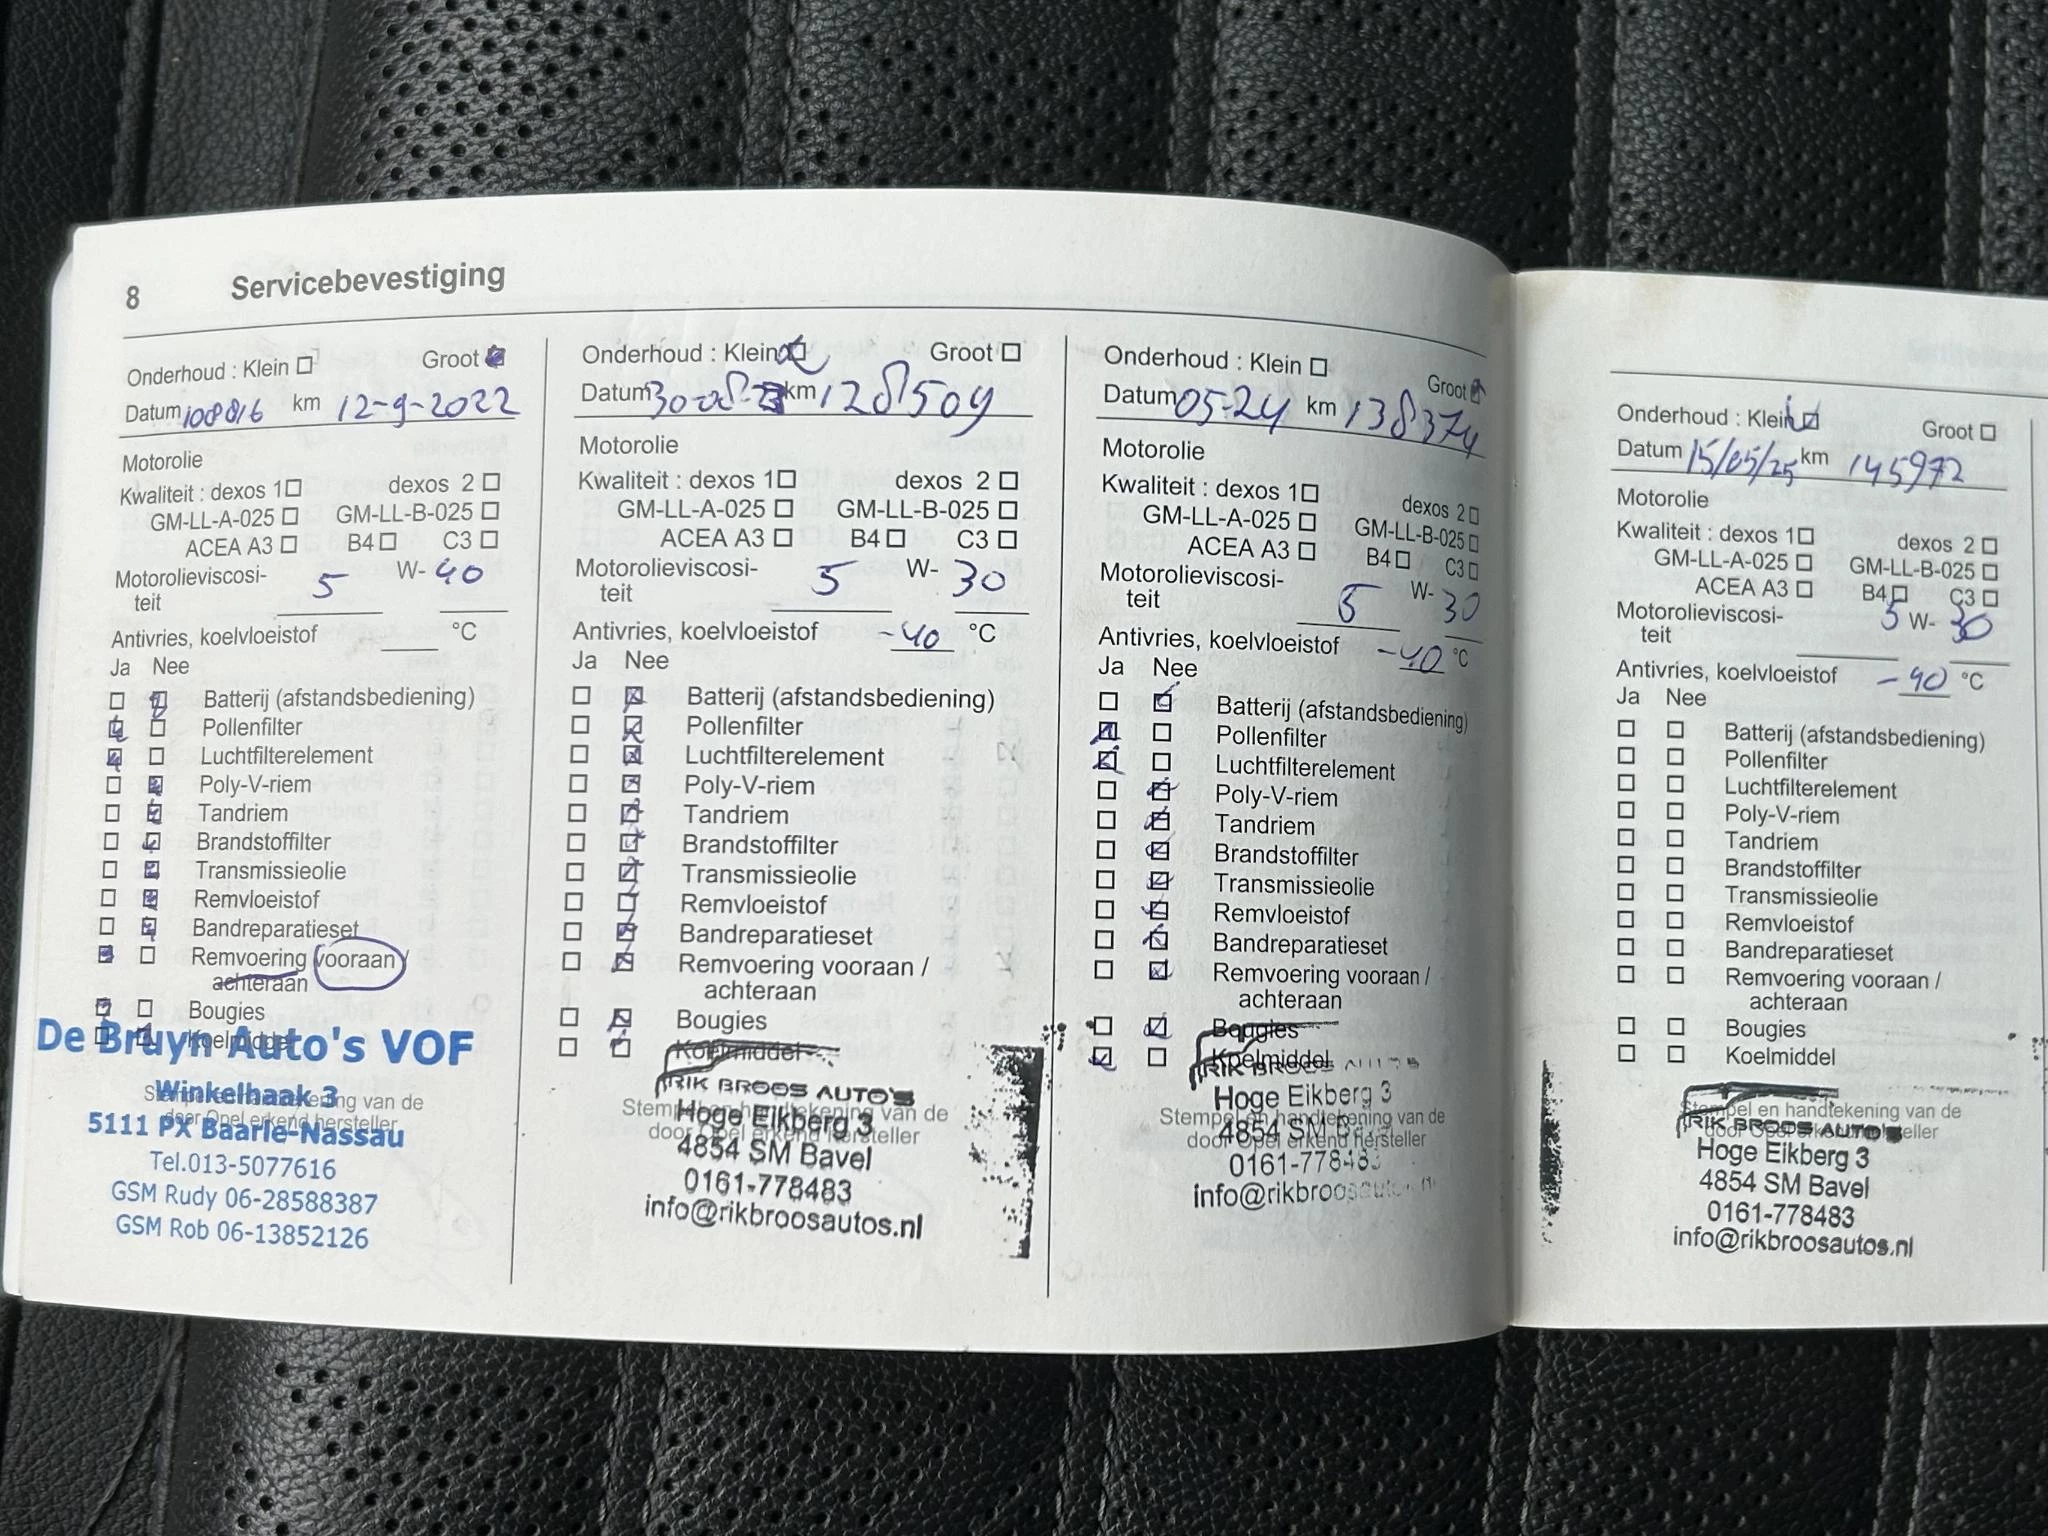 8 Servicebevestiging
Onderhoud : Klein Groot
Datum 108816 km 12-9-2022
Motorolie
Kwaliteit : dexos 1 dexos 2
GM-LL-A-025 GM-LL-B-025
ACEA A3 B4 C3
Motorolieviscosi- 5 W- 40
teit
Antivries, koelvloeistof °C
Ja Nee
Batterij (afstandsbediening)
Pollenfilter
Luchtfilterelement
Poly-V-riem
Tandriem
Brandstoffilter
Transmissieolie
Remvloeistof
Bandreparatieset
Remvoering vooraan /
achteraan
Bougies
Koelmiddel
De Bruyn Auto's VOF
Winkelhaak 3
Stempel en handtekening van de
door Opel erkend hersteller
5111 PX Baarle-Nassau
Tel.013-5077616
GSM Rudy 06-28588387
GSM Rob 06-13852126
Onderhoud : Klein Groot
Datum 30-08-23 km 128509
Motorolie
Kwaliteit : dexos 1 dexos 2
GM-LL-A-025 GM-LL-B-025
ACEA A3 B4 C3
Motorolieviscosi- 5 W- 30
teit
Antivries, koelvloeistof -40 °C
Ja Nee
Batterij (afstandsbediening)
Pollenfilter
Luchtfilterelement
Poly-V-riem
Tandriem
Brandstoffilter
Transmissieolie
Remvloeistof
Bandreparatieset
Remvoering vooraan /
achteraan
Bougies
Koelmiddel
RIK BROOS AUTO'S
Stempel en handtekening van de
Hoge Eikberg 3
door Opel erkend hersteller
4854 SM Bavel
0161-778483
info@rikbroosautos.nl
Onderhoud : Klein Groot
Datum 05-24 km 138374
Motorolie
Kwaliteit : dexos 1 dexos 2
GM-LL-A-025 GM-LL-B-025
ACEA A3 B4 C3
Motorolieviscosi- 5 W- 30
teit
Antivries, koelvloeistof -40 °C
Ja Nee
Batterij (afstandsbediening)
Pollenfilter
Luchtfilterelement
Poly-V-riem
Tandriem
Brandstoffilter
Transmissieolie
Remvloeistof
Bandreparatieset
Remvoering vooraan /
achteraan
Bougies
Koelmiddel
RIK BROOS AUTO'S
Hoge Eikberg 3
Stempel en handtekening van de
4854 SM Bavel
door Opel erkend hersteller
0161-778483
info@rikbroosautos.nl
Onderhoud : Klein Groot
Datum 15/05/25 km 145972
Motorolie
Kwaliteit : dexos 1 dexos 2
GM-LL-A-025 GM-LL-B-025
ACEA A3 B4 C3
Motorolieviscosi- 5 W- 30
teit
Antivries, koelvloeistof -40 °C
Ja Nee
Batterij (afstandsbediening)
Pollenfilter
Luchtfilterelement
Poly-V-riem
Tandriem
Brandstoffilter
Transmissieolie
Remvloeistof
Bandreparatieset
Remvoering vooraan /
achteraan
Bougies
Koelmiddel
Stempel en handtekening van de
RIK BROOS AUTO'S
door Opel erkend hersteller
Hoge Eikberg 3
4854 SM Bavel
0161-778483
info@rikbroosautos.nl